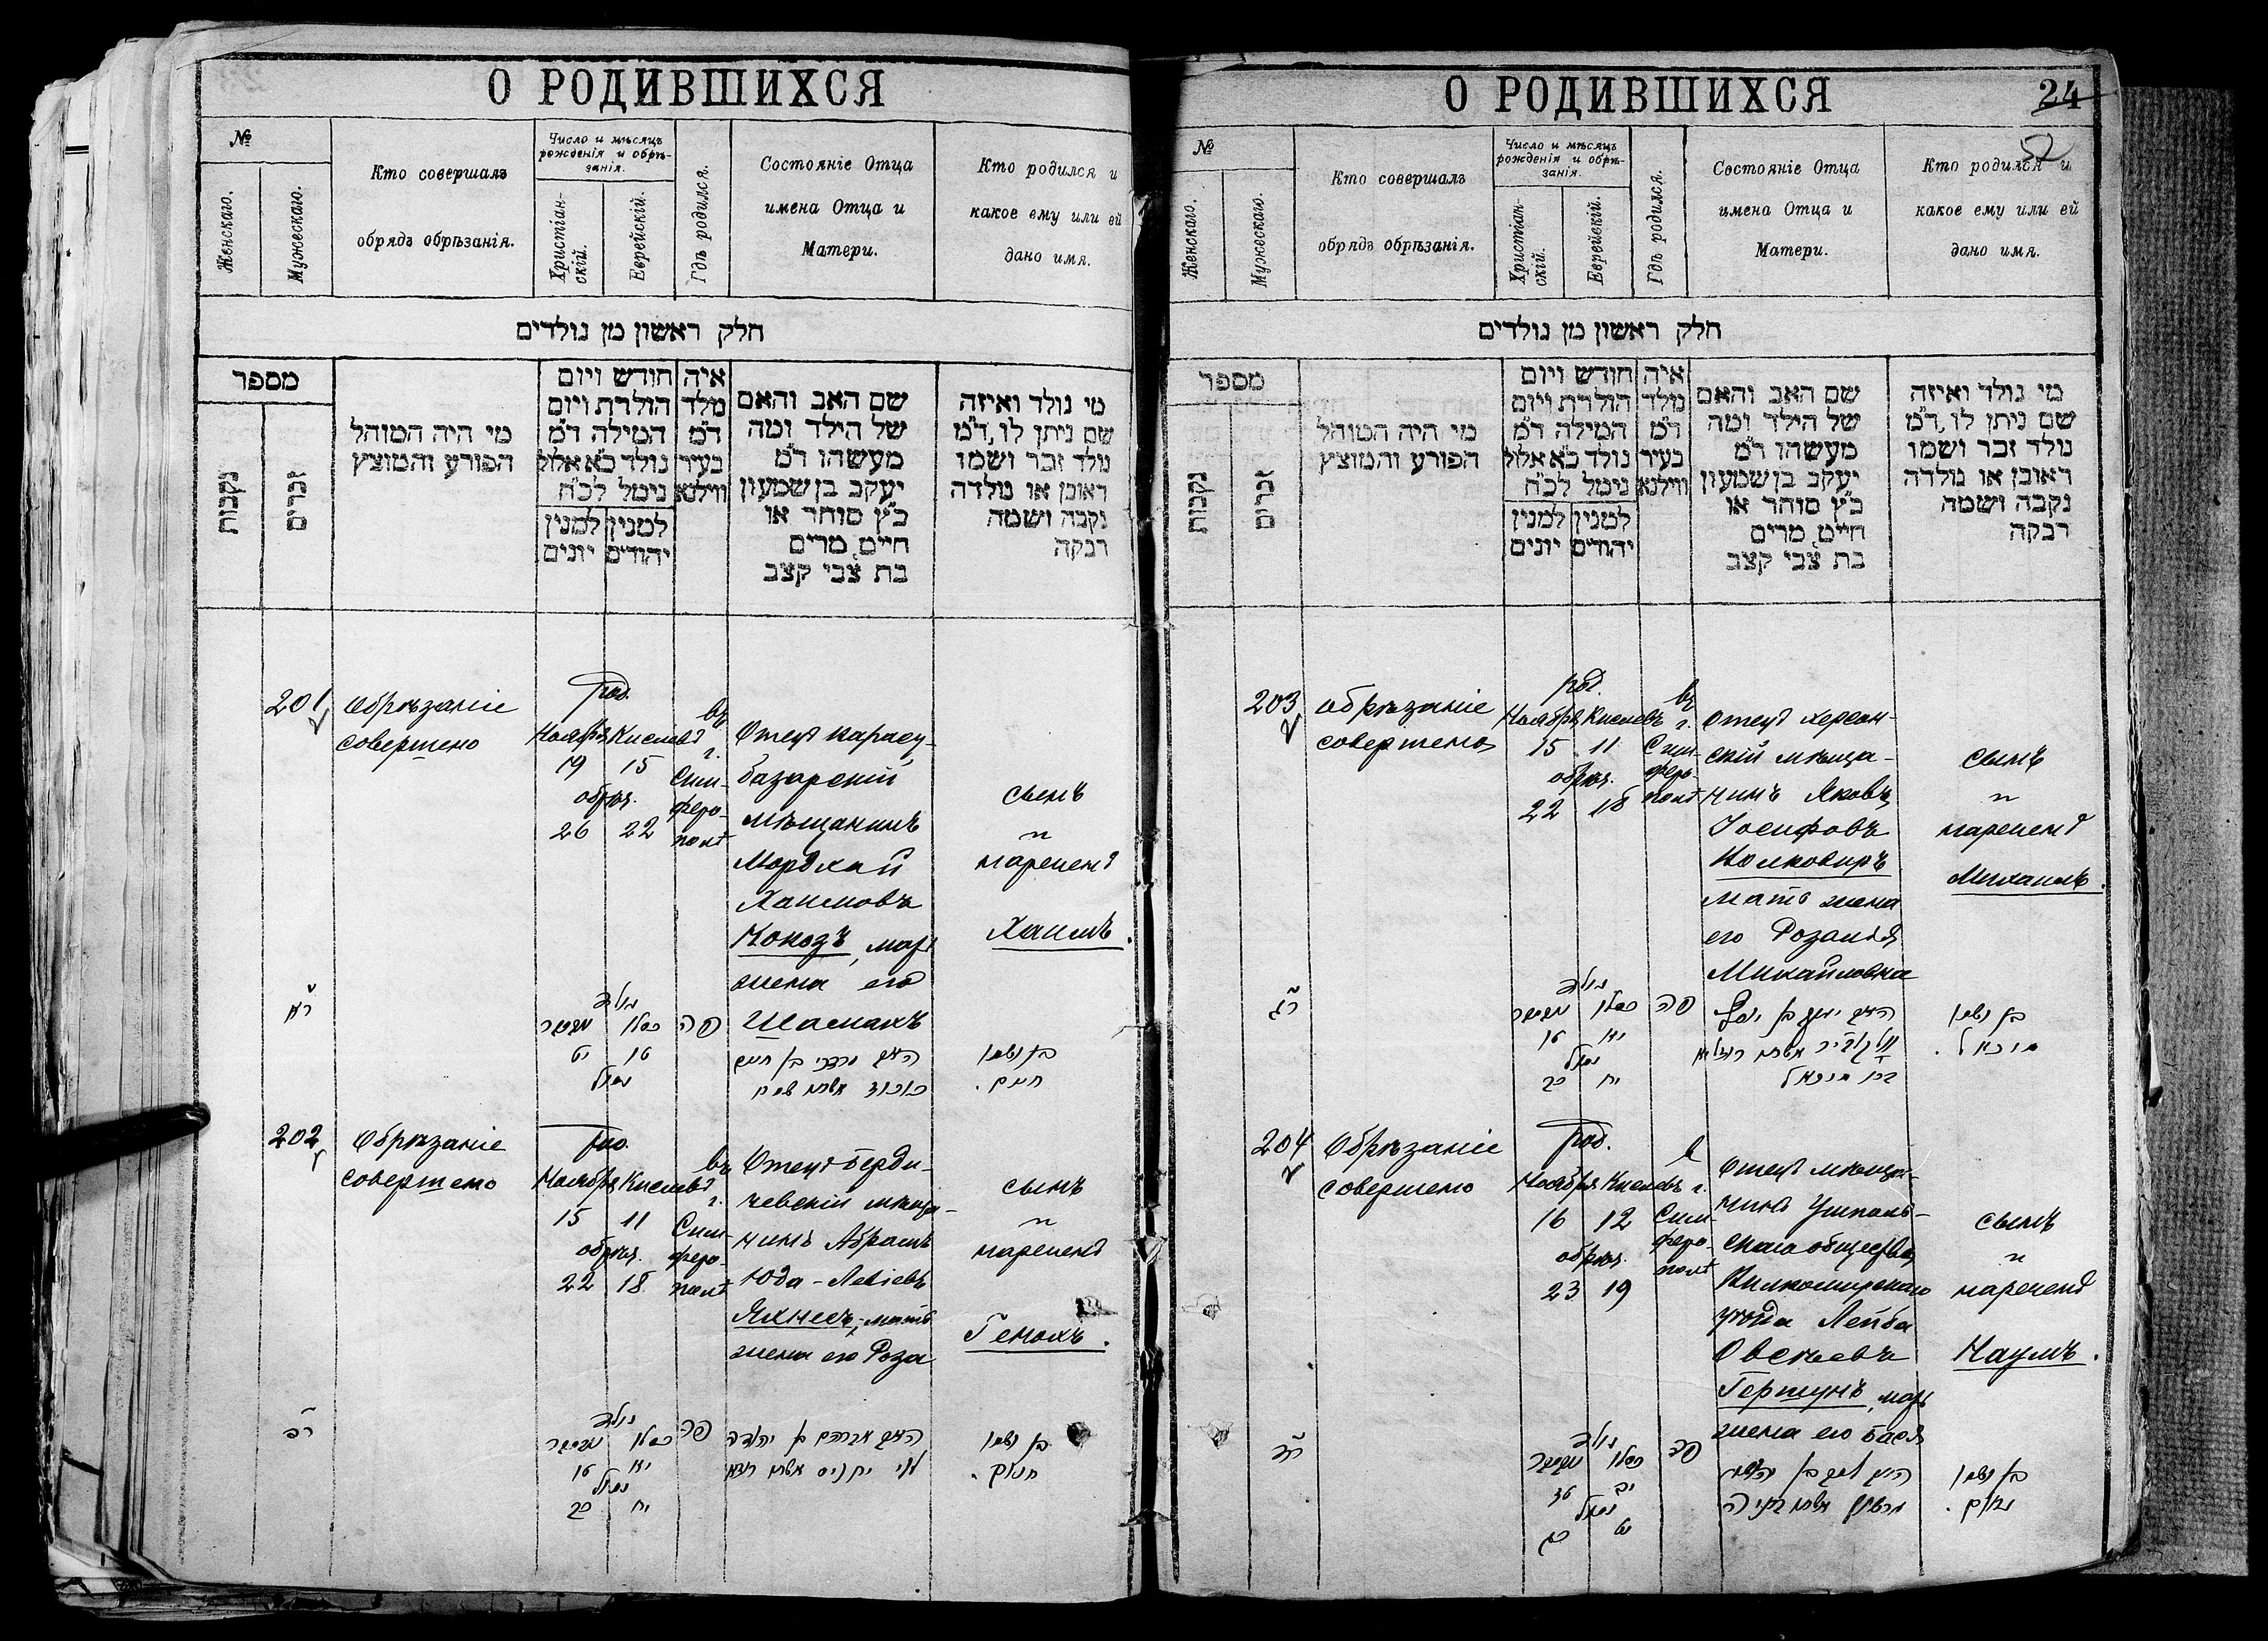 О РОДИВШИХСЯ
№
Женскаго.
Мужескаго.
Кто совершалъ
обрядъ обрѣзанія.
Число и мѣсяцъ
рожденія и обрѣ-
занія.
Христіан-
скій.
Еврейскій.
Гдѣ родился.
Состояніе Отца
имена Отца и
Матери.
Кто родился и
какое ему или ей
дано имя.
חלק ראשון מן נולדים
מספר
נקבות
זכרים
מי היה המוהל
הפורע והמוצץ
חודש ויום
הולדת ויום
המילה ד״מ
נולד כ״א אלול
נימל לכ״ח
למנין למנין
יהודים יונים
איה
מלד
ד״מ
בעיר
ווילנא
שם האב והאם
של הילד ומה
מעשהו ד״מ
יעקב בן שמעון
כ״ץ סוחר או
חייט, מרים
בת צבי קצב
מי נולד ואיזה
שם ניתן לו, ד״מ
נולד זכר ושמו
ראובן או נולדה
נקבה ושמה
רבקה
201
Обрѣзаніе
совершено
род.
Ноября Кислевъ
19 15
обрѣз.
26 22
въ
г.
Сим-
феро-
полѣ
Отецъ карасу-
базарскій
мѣщанинъ
Мордхай
Хаимовъ
Кокозъ, мать
жена его
Шамахъ
сынъ
и
нареченъ
Хаимъ.
רא
נולד
כסלו
טו יט
נימול
פה
האב מרדכי בן חיים
בן ושמו
חיים.
202
Обрѣзаніе
совершено
род.
Ноября Кислевъ
15 11
обрѣз.
22 18
въ
г.
Сим-
феро-
полѣ
Отецъ Берди-
чевскій мѣща-
нинъ Абрамъ
Юда-Лейіевъ
Яхнесъ, мать
жена его Роза
сынъ
и
нареченъ
Генохъ.
רב
נולד
כסלו
יא טו
נימול
יח כב
פה
האב אברהם בן יהודה
לוי יחניס אשתו רוזא
בן ושמו
חנוך.
О РОДИВШИХСЯ
24
№
Женскаго.
Мужескаго.
Кто совершалъ
обрядъ обрѣзанія.
Число и мѣсяцъ
рожденія и обрѣ-
занія.
Христіан-
скій.
Еврейскій.
Гдѣ родился.
Состояніе Отца
имена Отца и
Матери.
Кто родился и
какое ему или ей
дано имя.
חלק ראשון מן נולדים
מספר
נקבות
זכרים
מי היה המוהל
הפורע והמוצץ
חודש ויום
הולדת ויום
המילה ד״מ
נולד כ״א אלול
נימל לכ״ח
למנין למנין
יהודים יונים
איה
מלד
ד״מ
בעיר
ווילנא
שם האב והאם
של הילד ומה
מעשהו ד״מ
יעקב בן שמעון
כ״ץ סוחר או
חייט, מרים
בת צבי קצב
מי נולד ואיזה
שם ניתן לו, ד״מ
נולד זכר ושמו
ראובן או נולדה
נקבה ושמה
רבקה
203
обрѣзаніе
совершено
род.
Ноября Кислевъ
15 11
обрѣз.
22 18
въ
г.
Сим-
феро-
полѣ
Отецъ херсон-
скій мѣща-
нинъ Яковъ
Іосифовъ
мать жена
его Розалія
Михайловна
сынъ
и
нареченъ
Михаилъ.
רג
נולד
כסלו
יא טו
נימול
יח כב
פה
האב יעקב בן יוסף
אשתו רוזליא
בת מיכאל
בן ושמו
מיכאל.
204
Обрѣзаніе
совершено
род.
Ноября Кислевъ
16 12
обрѣз.
23 19
в
г.
Сим-
феро-
полѣ
Отецъ мѣща-
нинъ Ушполь-
скаго общества
Вилкомирскаго
уѣзда Лейба
Овсеевъ
Гершунъ, мать
жена его Бася
сынъ
и
нареченъ
Наумъ.
רד
נולד
כסלו
יב טז
נימול
יט כג
פה
בן ושמו
נחום.